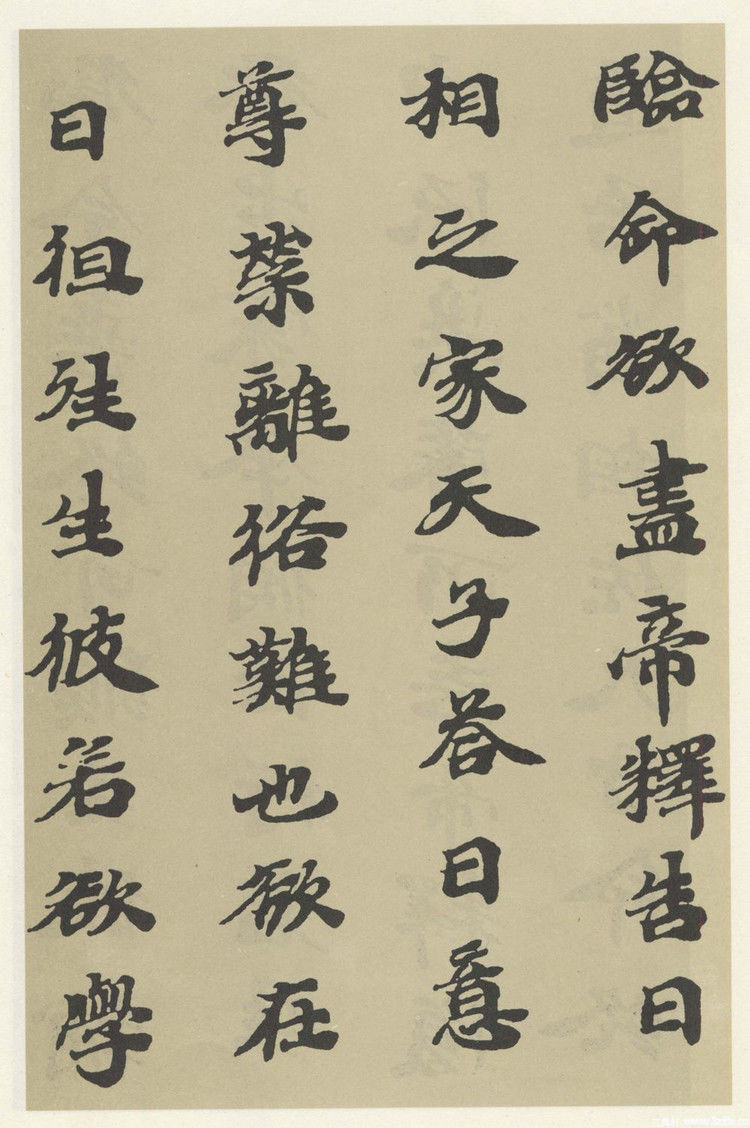 臨命欲盡帝釋告曰
相之家天子荅曰意
尊榮離俗難也欲在
曰但往生彼若欲學